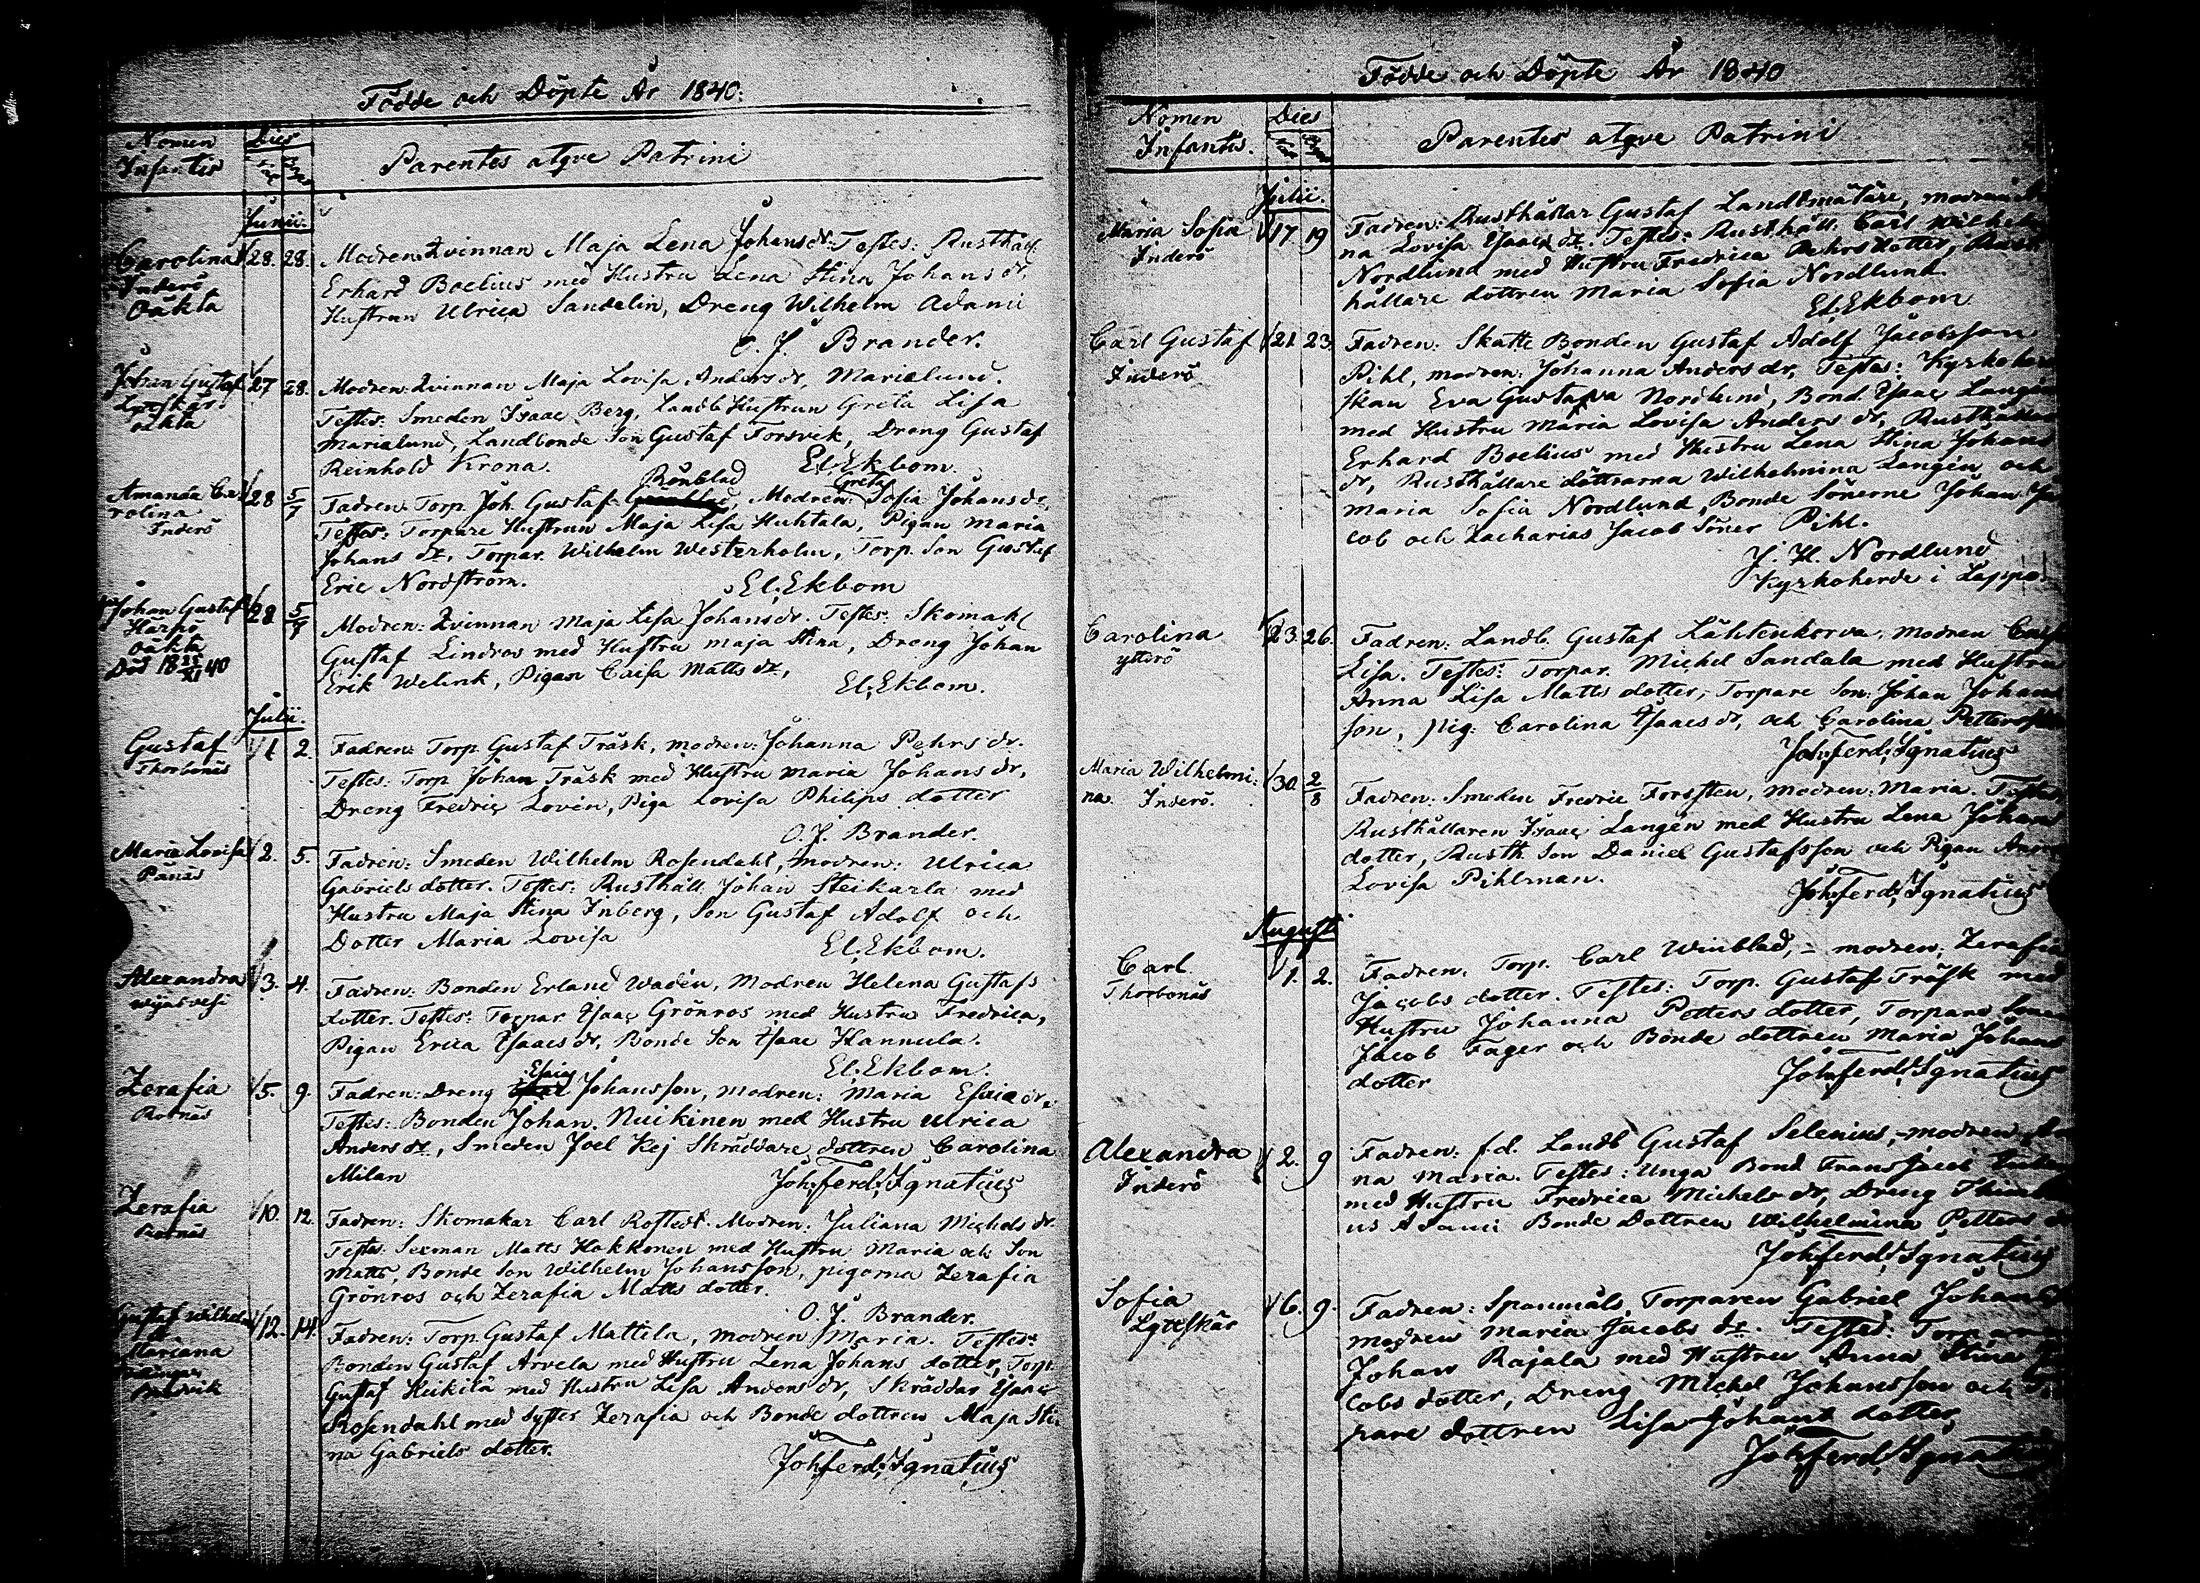 Födde och Döpte År 1840.
Nomen Infantis
Dies
Parentes atqve Patrini
Junii.
Carolina 28. 28.
Inderö
Oäkta
Modren: Qvinnan Maja Lena Johans dr. Testes: Rusthåll
Erhard Boelius med Hustru Lena Stina Johans dr,
Hustrun Ulrica Sandelin, Dreng Wilhelm Adami
O. J. Brander.
Johan Gustaf 27 28.
oäkta
Modren: Qvinnan Maja Lovisa Anders dr, Marielund.
Testes: Smeden Isaac Berg, Landb. Hustrun Greta Lisa
Marialund, Landbonde Son Gustaf Forsvik, Dreng Gustaf
Reinhold Krona. El. Ekbom.
Amanda Ca- 28 5/7
rolina
Inderö
Rönblad Greta
Fadren: Torp. Joh. Gustaf Modren: Sofia Johans dr,
Testes: Torpare Hustrun Maja Lisa Huhtala, Pigan Maria
Johans dr, Torpar. Wilhelm Westerholm, Torp. Son Gustaf
Eric Nordström. El. Ekbom
Johan Gustaf 28 5/7
Härpö
oäkta
Död 18 40
Modren: Qvinnan Maja Lisa Johans dr. Testes: Skomak.
Gustaf Lindros med Hustru Maja Stina, Dreng Johan
Erik Welink, Pigan Caisa Matts dr,
El. Ekbom.
Julii.
Gustaf 1 2.
Thorbonäs
Fadren: Torp. Gustaf Träsk, modren: Johanna Pehrs dr.
Testes: Torp. Johan Träsk med Hustru Maria Johans dr,
Dreng Fredric Lovén, Piga Lovisa Philips dotter
O. J. Brander.
Maria Lovisa 2. 5.
Pänäs
Fadren: Smeden Wilhelm Rosendahl, modren: Ulrica
Gabriels dotter. Testes: Rusthåll. Johan Steikarla med
Hustru Maja Stina Inberg, Son Gustaf Adolf och
Dotter Maria Lovisa
El. Ekbom.
Alexandra 3. 4.
Fadren: Bonden Erland Wadén, Modren Helena Gustafs
dotter. Testes: Torpar. Isaac Grönros med Hustru Fredrica,
Pigan Erica Isaacs dr, Bonde Son Isaac Hannula.
El. Ekbom.
Zerafia 5. 9.
Rotnäs
Esaias
Fadren: Dreng Johansson, modren: Maria Esaiae dr.
Testes: Bonden Johan Nuikinen med Hustru Ulrica
Anders dr, Smeden Joel Kej Skräddare dottren Carolina
Milan Joh. Ferd. Ignatius
Zerafia 10. 12.
Rotnäs
Fadren: Skomakar Carl Rostedt. Modren: Juliana Michels dr.
Testes. Sexman Matts Hakkonen med Hustru Maria och Son
Matts, Bonde Son Wilhelm Johansson, pigorna Zerafia
Grönros och Zerafia Matts dotter.
O. J. Brander.
Gustaf Wilhelm 12. 14.
Mariana
Fadren: Torp. Gustaf Mattila, modren Maria. Testes:
Bonden Gustaf Arvela med Hustru Lena Johans dotter, Torp.
Gustaf Heikilä med Hustru Lisa Anders dr, Skräddar. Isaac
Rosendahl med Syster Zerafia och Bonde dottren Maja Sti-
na Gabriels dotter.
Joh. Ferd. Ignatius
Födde och Döpte År 1840
Nomen Infantis.
Dies
Parentes atqve Patrini
Julii.
Maria Sofia 17 19
Inderö
Fadren: Rusthållar Gustaf Landtmätare, modren
na Lovisa Isaacs dr. Testes: Rusthåll. Carl Wilhelm
Nordlund med Hustru Fredrica Pehrs dotter, Rust
hållare dottren Maria Sofia Nordlund.
El. Ekbom
Carl Gustaf 21 23.
Inderö
Fadren: Skatte Bonden Gustaf Adolf Jacobsson
Pihl, modren: Johanna Anders dr, Testes: Kyrkoher
skan Eva Gustafva Nordlund, Bond. Isaac Langén
med Hustru Maria Lovisa Anders dr, Rusthållare
Erhard Boelius med Hustru Lena Stina Johans
dr, Rusthållare döttrarna Wilhelmina Langén och
Maria Sofia Nordlund, Bonde Sönerne Johan Ja
cob och Zacharias Jacob Söner Pihl.
J. H. Nordlund
Kyrkoherde i Lappo.
Carolina 23. 26.
ytterö
Fadren: Landb. Gustaf Lähtenkorva, modren Caisa
Lisa. Testes: Torpar. Michel Sandala med Hustru
Anna Lisa Matts dotter, Torpare Son: Johan Johans
son, pig. Carolina Isaacs dr, och Carolina
Joh. Ferd. Ignatius
Maria Wilhelmi- 30. 2/8
na. Inderö.
Fadren: Smeden Fredric Forssten, modren: Maria. Testes,
Rusthållaren Isaac Langén med Hustru Lena Johans
dotter, Rusth. Son Daniel Gustafsson och Pigan
Lovisa Pihlman.
Joh. Ferd. Ignatius
Augusti
Carl 1. 2.
Thorbonäs
Fadren. Torp. Carl Winblad, modren: Zerafia
Jacobs dotter. Testes: Torp. Gustaf Träsk med
Hustru Johanna Petters dotter, Torpare Sonen
Jacob Fager och Bonde dottren Maria Johans
dotter Joh. Ferd. Ignatius
Alexandra 2. 9
Inderö
Fadren: f.d. Landb Gustaf Selenius, modren
na Maria. Testes: Unga Bond. Frans Jacob
med Hustru Fredrica Michels dr, Dreng
us Adami Bonde Dottren Wilhelmina Petters
Joh. Ferd. Ignatius
Sofia 6. 9.
Fadren: Spanmåls Torparen Gabriel Johans
modren Maria Jacobs dr. Testes: Torparen
Johan Rajala med Hustru Anna Stina
cobs dotter, Dreng Michel Johansson och
pare dottren Lisa Johans dotter,
Joh. Ferd. Ignatius